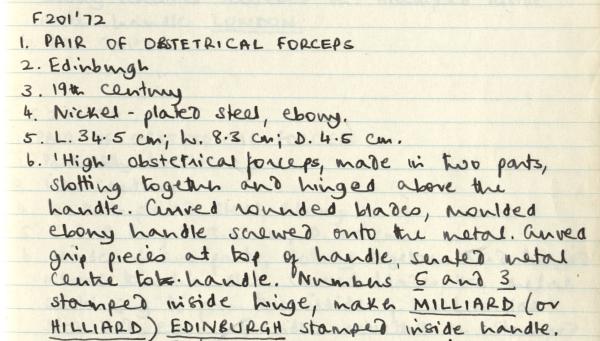 F201'72
1. PAIR OF OBSTETRICAL FORCEPS
2. Edinburgh
3. 19th century
4. Nickel-plated steel, ebony.
5. L. 34.5 cm; W. 8.3 cm; D. 4.5 cm.
6. 'High' obstetrical forceps, made in two parts,
slotting together and hinged above the
handle. Curved rounded blades, moulded
ebony handle screwed onto the metal. Curved
grip pieces at top of handle, serated metal
centre to handle. Numbers 5 and 3
stamped inside hinge, maker MILLIARD (or
HILLIARD) EDINBURGH stamped inside handle.